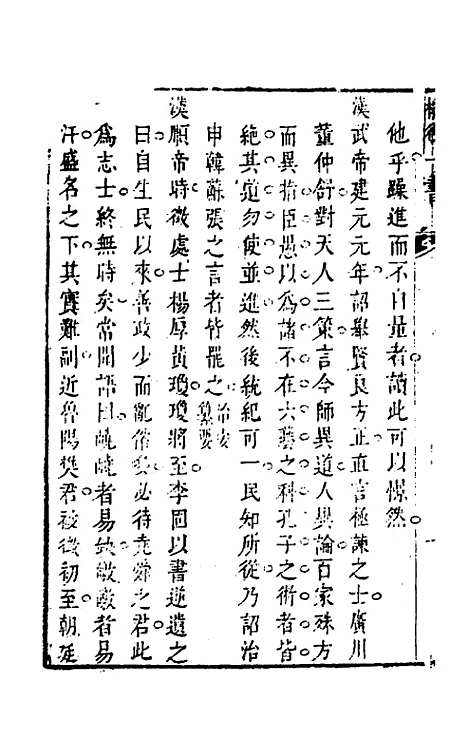 他乎躁進而不自量者讀此可以惕然
漢武帝建元元年詔舉賢良方正直言極諫之士廣川
董仲舒對天人三策言今師異道人異論百家殊方
而異指臣愚以為諸不在六藝之科孔子之術者皆
絶其道勿使並進然後統紀可一民知所從乃詔治
申韓蘇張之言者皆罷之
漢順帝時徵處士楊厚黃瓊瓊將至李固以書逆遺之
曰自生民以來善政少而亂俗多必待堯舜之君此
為志士終無時矣常聞語曰嶢嶢者易缺皦皦者易
汙盛名之下其實難副近魯陽樊君被徵初至朝廷